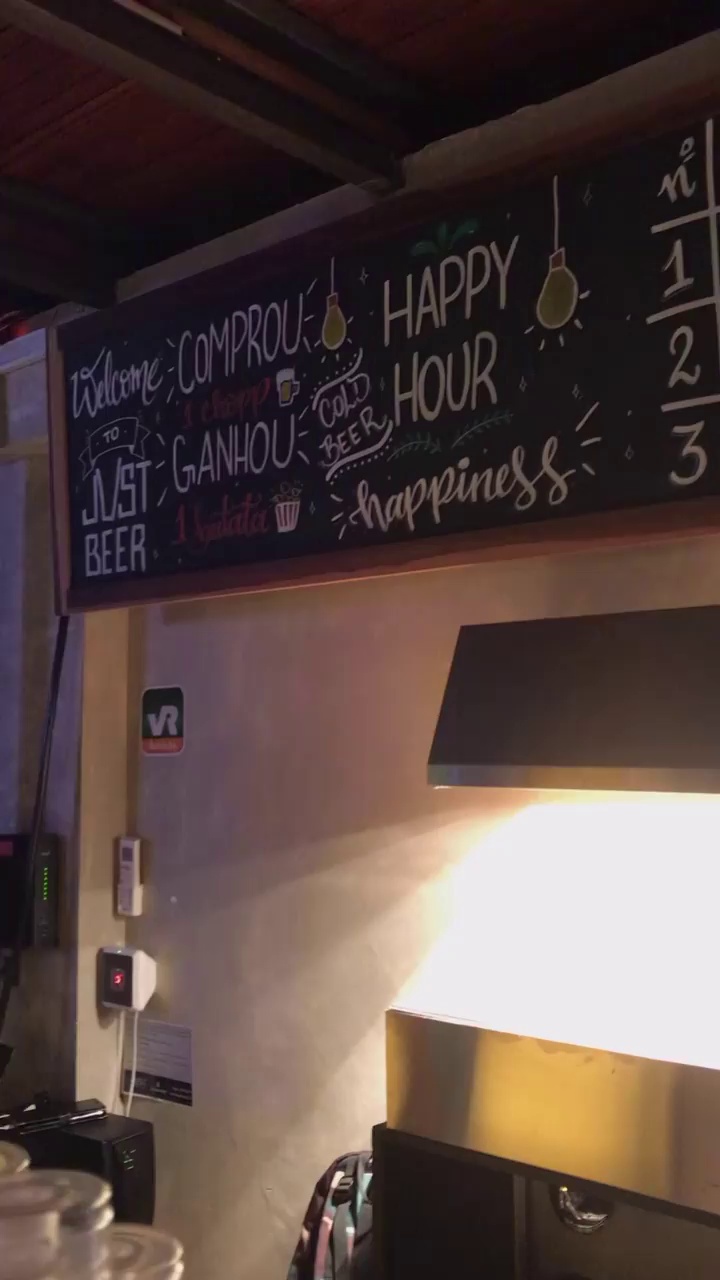 Welcome
TO
JUST
BEER
COMPROU
1 chopp
GANHOU
COLD
BEER
HAPPY
HOUR
happiness
nº
1
2
3
VR